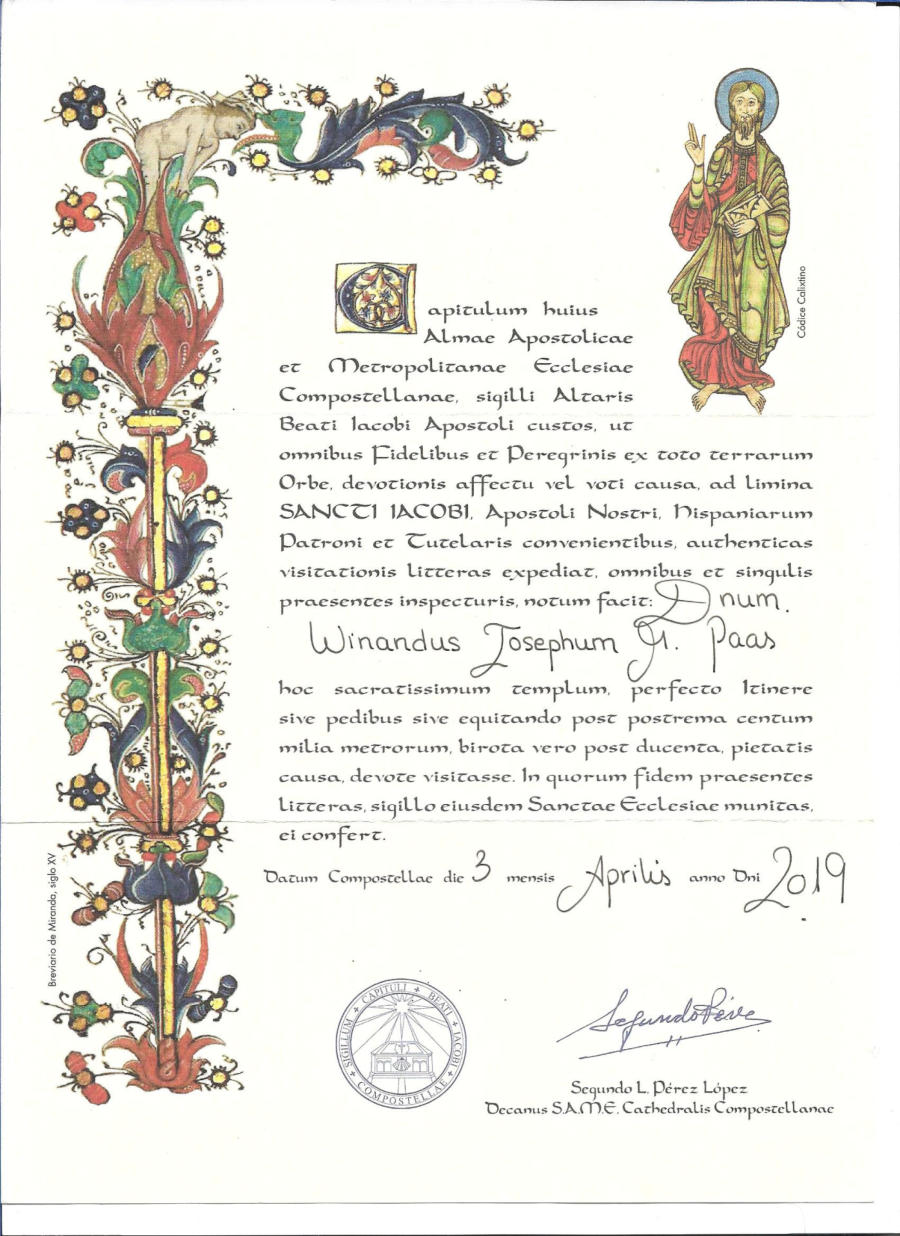 Códice Calixtino
Capitulum huius
Almae Apostolicae
et Metropolitanae Ecclesiae
Compostellanae, sigilli Altaris
Beati Iacobi Apostoli custos, ut
omnibus Fidelibus et Peregrinis ex toto terrarum
Orbe, devotionis affectu vel voti causa, ad limina
SANCTI IACOBI, Apostoli Nostri, Hispaniarum
Patroni et Tutelaris convenientibus, authenticas
visitationis litteras expediat, omnibus et singulis
praesentes inspecturis, notum facit: Dnum.
Winandus Josephum M. Paas
hoc sacratissimum templum, perfecto Itinere
sive pedibus sive equitando post postrema centum
milia metrorum, birota vero post ducenta, pietatis
causa, devote visitasse. In quorum fidem praesentes
litteras, sigillo eiusdem Sanctae Ecclesiae munitas,
ei confert.
Datum Compostellae die 3 mensis Aprilis anno Dni 2019
Breviario de Miranda, siglo XV
SIGILLUM + CAPITULI + BEATI + IACOBI + COMPOSTELLAE +
Segundo Pérez
Segundo L. Pérez López
Decanus S.A.M.E. Cathedralis Compostellanae